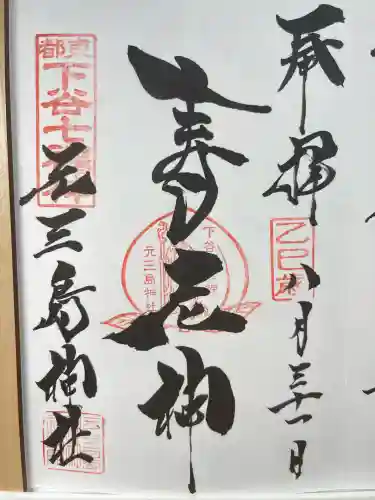 奉拝
乙巳歳
八月三十一日
寿老神
下谷
元三島神社
東京都
下谷七福神
元三島神社